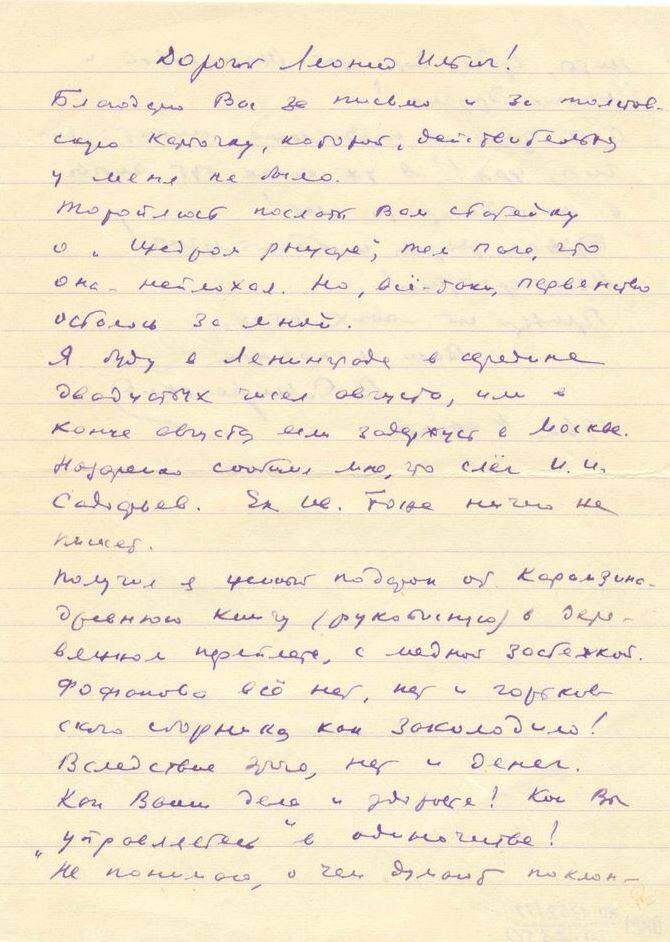 Дорогой Леонид Ильич!
Благодарю Вас за письмо и за толстов-
скую карточку, которой, действительно,
у меня не было.
Тороплюсь послать Вам статейку
о „Щедром рыцаре“, тем паче, что
она - неплохая. Но, всё-таки, первенство
осталось за мной.
Я буду в Ленинграде в середине
двадцатых чисел августа, или в
конце августа, если задержусь в Москве.
Назаренко сообщил мне, что слёг И. И.
Садофьев. Ек. Ив. тоже ничего не
пишет.
Получил я ценный подарок от Карамзина -
древнюю книгу (рукописную) в дере-
вянном переплете, с медной застежкой.
Фофанова всё нет, нет и горьков-
ского сборника, как заколодило!
Вследствие этого, нет и денег.
Как Ваши дела и здоровье! Как Вы
„управляетесь“ в одиночестве!
Не понимаю, о чем думают поклон-